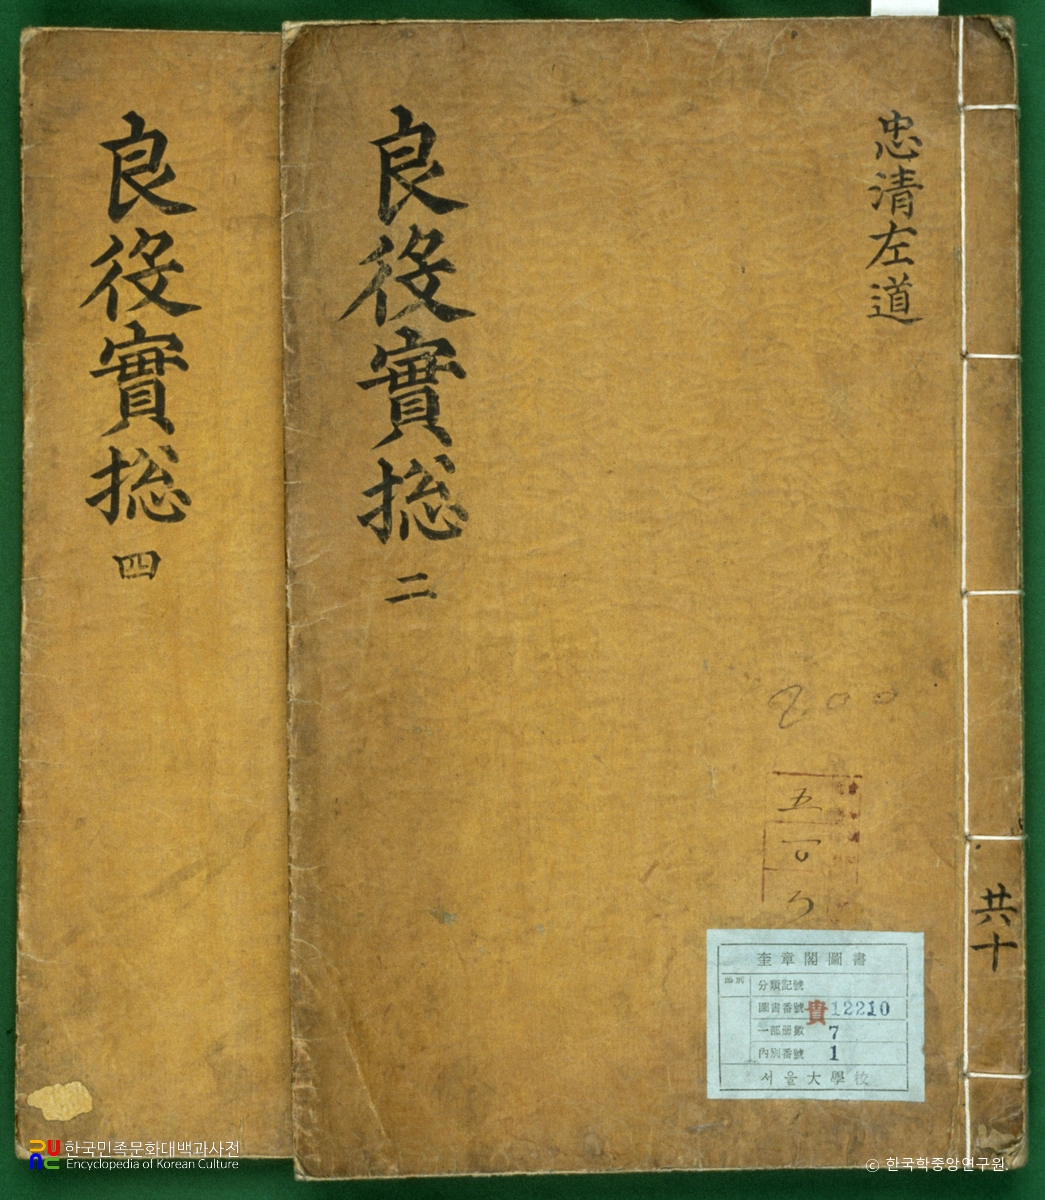 良役實摠
四
良役實摠
二
忠清左道
共十
200
五
奎章閣圖書
分類記號
圖書番號 貴 12210
一部册數 7
內別番號 1
서울大學校
한국민족문화대백과사전
Encyclopedia of Korean Culture
© 한국학중앙연구원.